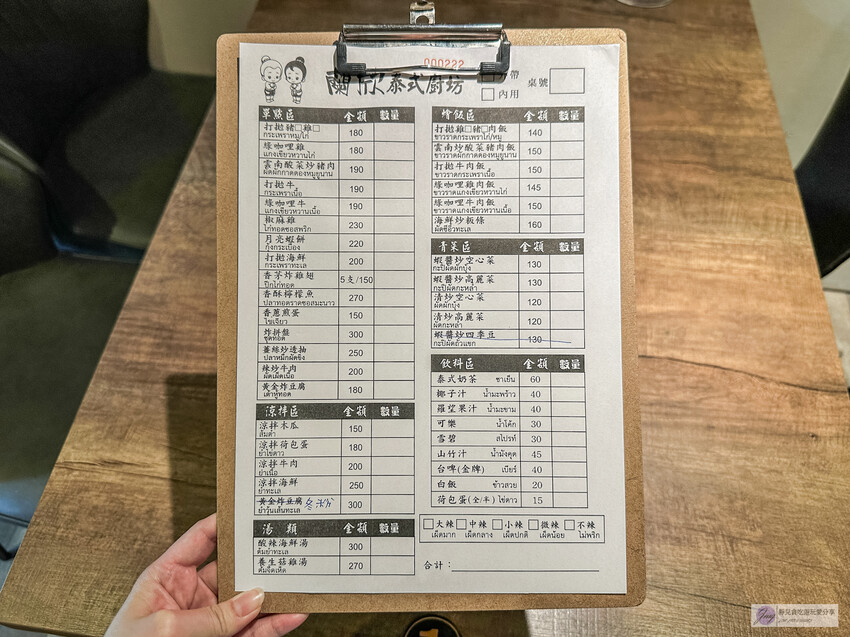 000222
泰式廚坊
帶
內用
桌號
單點區 金額 數量
打拋豬□雞□ 180
กระเพราหมู/ไก่
綠咖哩雞 180
แกงเขียวหวานไก่
雲南酸菜炒豬肉 190
ผัดผักกาดดองหมูยูนาน
打拋牛 190
กระเพราเนื้อ
綠咖哩牛 190
แกงเขียวหวานเนื้อ
椒麻雞 230
ไก่ทอดซอสพริก
月亮蝦餅 220
กุ้งกระเบื้อง
打拋海鮮 200
กระเพราทะเล
香茅炸雞翅 5支/150
ปีกไก่ทอด
香酥檸檬魚 270
ปลาทอดราดซอสมะนาว
香蔥煎蛋 150
ไข่เจียว
炸拼盤 300
ชุดทอด
薑絲炒透抽 250
ปลาหมึกผัดขิง
辣炒牛肉 200
ผัดเผ็ดเนื้อ
黃金炸豆腐 180
เต้าหู้ทอด
涼拌區 金額 數量
涼拌木瓜 150
ส้มตำ
涼拌荷包蛋 180
ยำไข่ดาว
涼拌牛肉 200
ยำเนื้อ
涼拌海鮮 250
ยำทะเล
黃金炸豆腐 300
ยำวุ้นเส้นทะเล
湯類 金額 數量
酸辣海鮮湯 300
ต้มยำทะเล
養生菇雞湯 270
ต้มจืดเห็ด
燴飯區 金額 數量
打拋雞□豬□肉飯 140
ข้าวราดกระเพราไก่/หมู
雲南炒酸菜豬肉飯 150
ข้าวราดผักกาดดองหมูยูนาน
打拋牛肉飯 150
ข้าวราดกระเพราเนื้อ
綠咖哩雞肉飯 145
ข้าวราดแกงเขียวหวานไก่
綠咖哩牛肉飯 150
ข้าวราดแกงเขียวหวานเนื้อ
海鮮炒粄條 160
ผัดซีอิ๊วทะเล
青菜區 金額 數量
蝦醬炒空心菜 130
กะปิผัดผักบุ้ง
蝦醬炒高麗菜 130
กะปิผัดกะหล่ำ
清炒空心菜 120
ผัดผักบุ้ง
清炒高麗菜 120
ผัดกะหล่ำ
蝦醬炒四季豆 130
กะปิผัดถั่วแขก
飲料區 金額 數量
泰式奶茶 ชาเย็น 60
椰子汁 น้ำมะพร้าว 40
羅望果汁 น้ำมะขาม 40
可樂 น้ำโค้ก 30
雪碧 สไปรท์ 30
山竹汁 น้ำมังคุด 45
台啤(金牌) เบียร์ 40
白飯 ข้าวสวย 20
荷包蛋(全/半) ไข่ดาว 15
□大辣 □中辣 □小辣 □微辣 □不辣
เผ็ดมาก เผ็ดกลาง เผ็ดปกติ เผ็ดน้อย ไม่พริก
合計：
靜兒貪吃遊玩愛分享